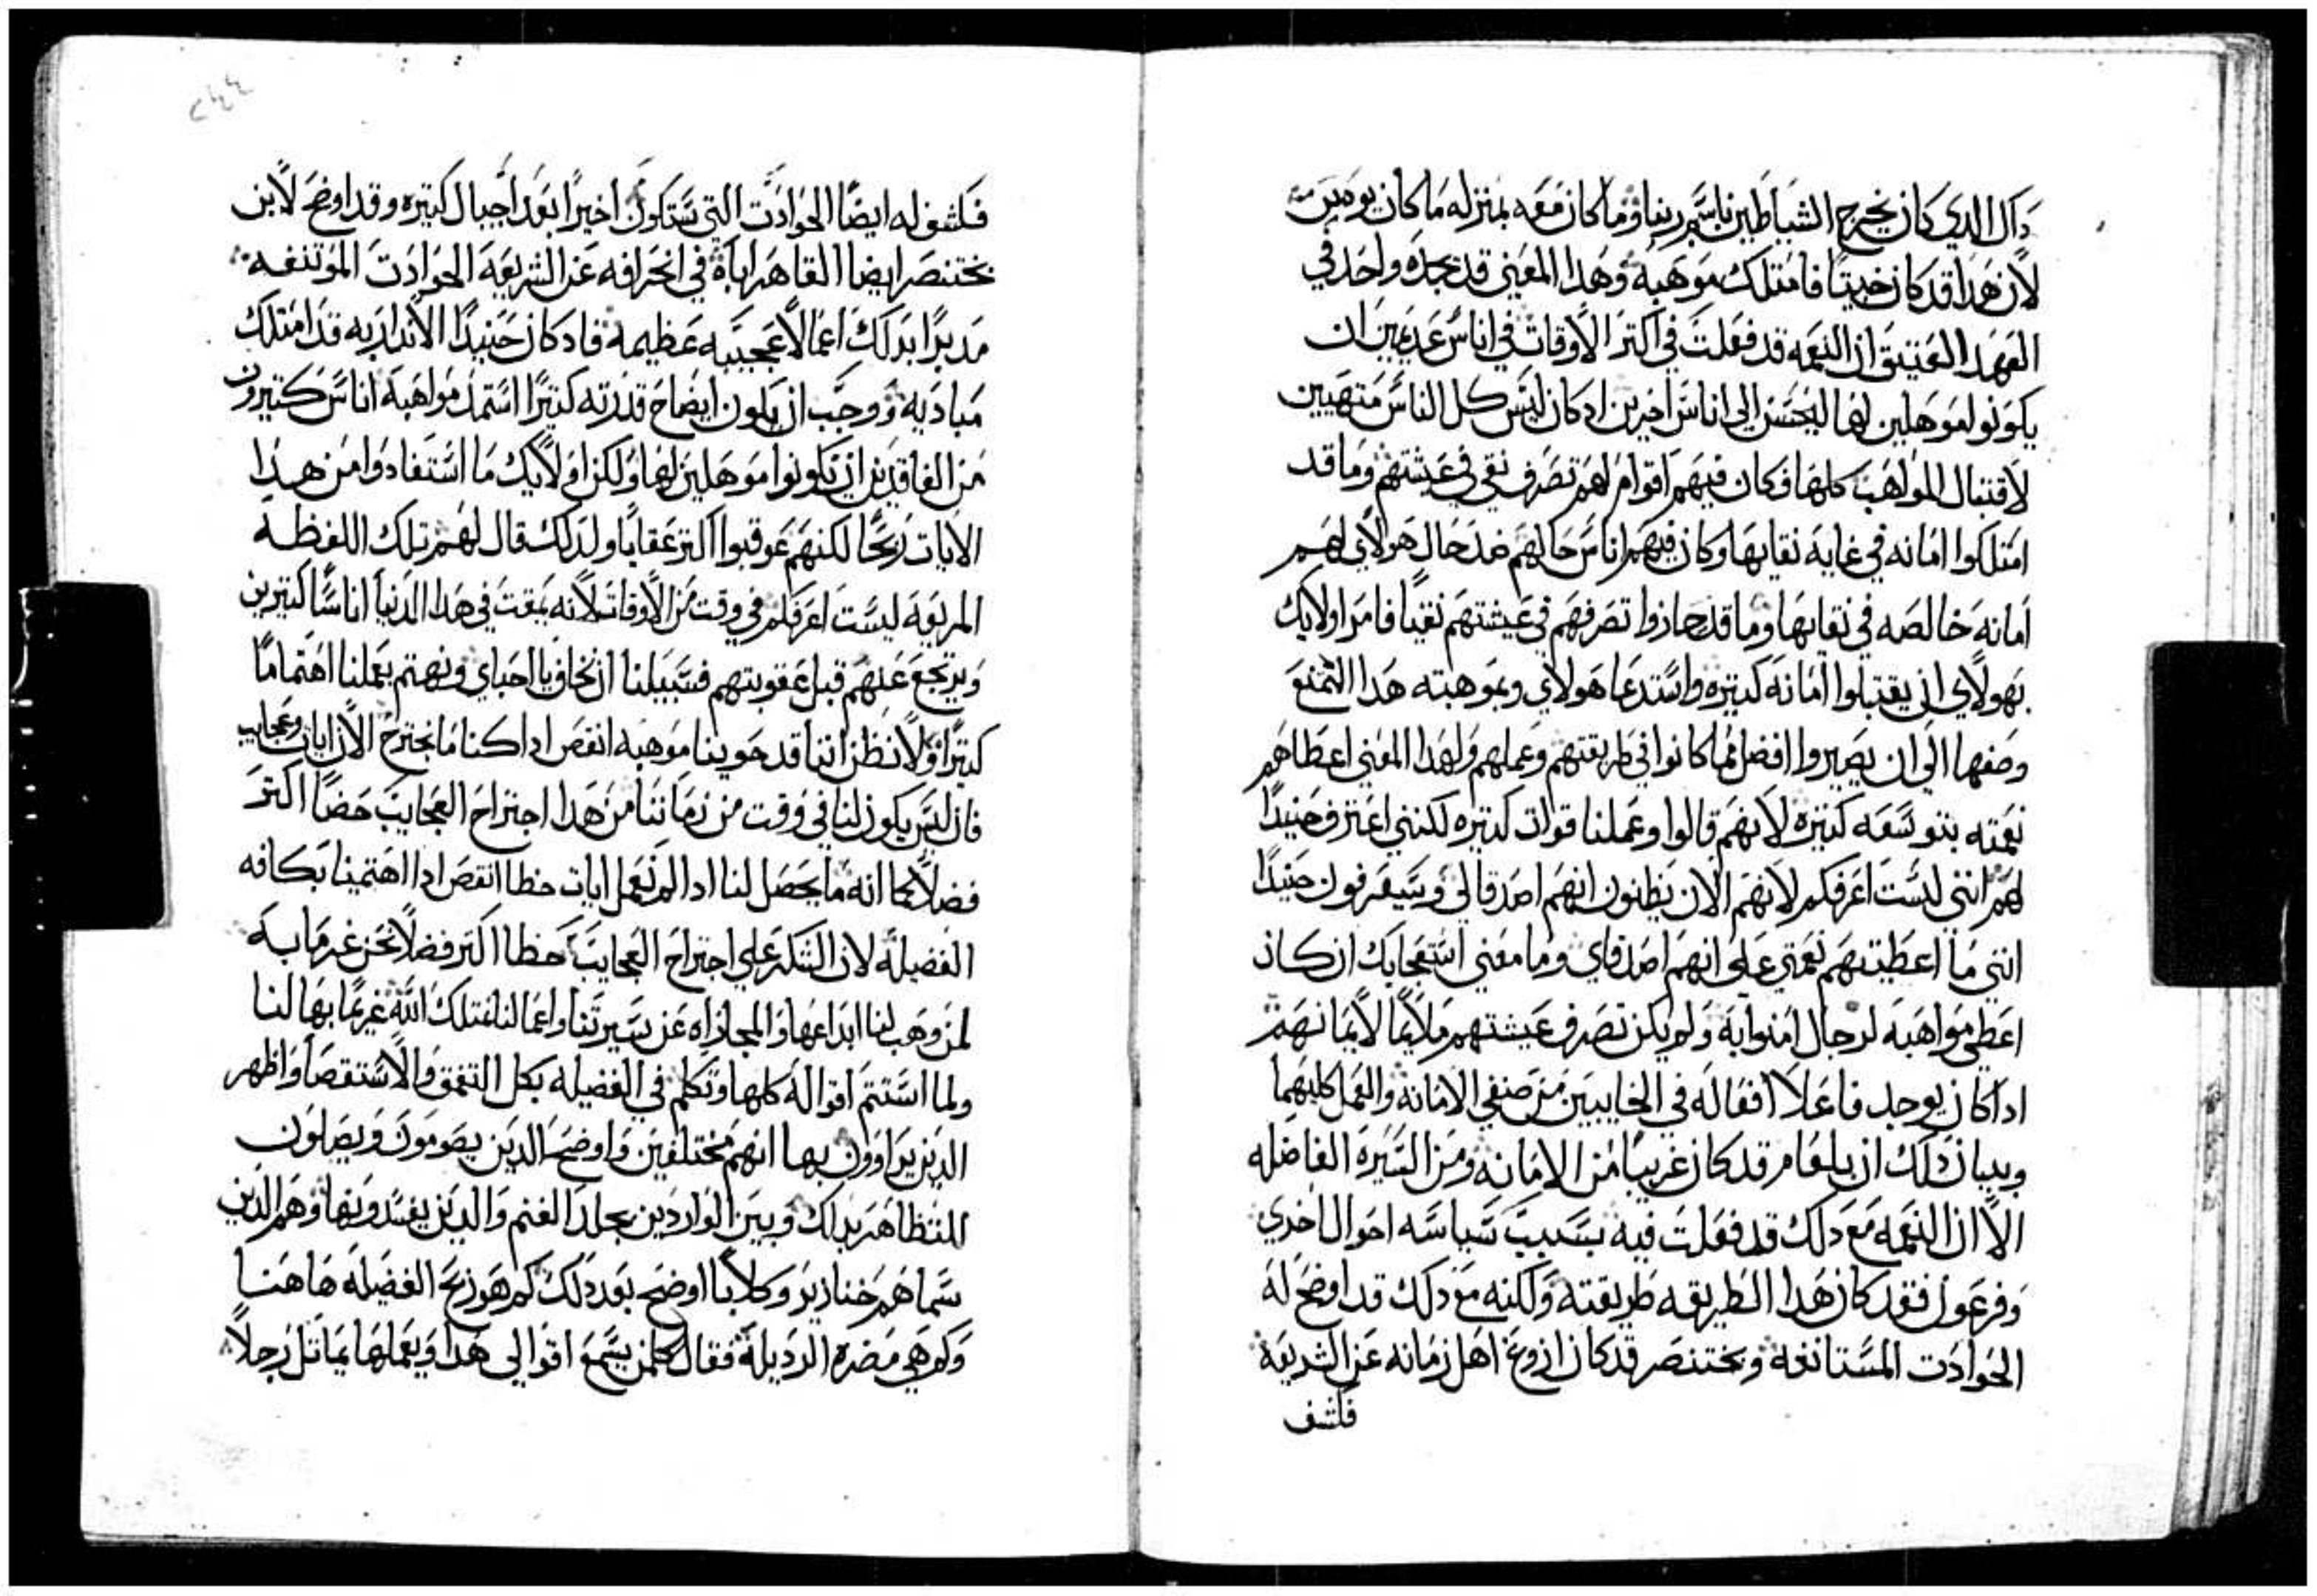 داك الدي كان يخرج الشياطين باسم ربنا وما كان معه بمنزله ما كان يوهبن
لان هدا قد كان خبيتا فامتلك موهبه وهدا المعني قد نجده واحد في
العهد العتيق ان النعمه قد فعلت في اكتر الاوقات في اناس عديمين ان
يكونوا موهلين لها ليحسن الي اناس اخرين اد كان ليس كل الناس متهيين
لاقتبال المواهب كلها فكان فيهم اقوام لهم تصرف نقي في عيشتهم وما قد
امتلكوا امانه في غاية نقايها وكان فيهم اناس حالهم ضد حال هولاي لهم
امانه خالصه في نقايها وما قد حازوا تصرفهم في عيشتهم نقيا فامر اولايك
بهولاي ان يقتبلوا امانه كتيره واستدعا هولاي وبموهبته هدا الممتنع
وصفها الي ان يصيروا افضل مما كانوا في طريقتهم وعملهم ولهدا المعني اعطاهم
نعمته بتوسعه كتيره لانهم قالوا وعملنا قوات كتيره لكنني اعترف حنيدا
لهم انني لست اعرفكم لانهم الان يظنون انهم اصدقا لي وسيعرفون حنيدا
انني ما اعطيتهم نعمتي علي انهم اصدقاي وما معني استعجابك ان كان
اعطي مواهبه لرجال امنوا به ولم يكن تصرف عيشتهم ملايما لايمانهم
ادا كان يوجد فاعلا افعاله في الخايبين من صنفي الامانه والعمل كليهما
وبيان دلك ان بلعام قد كان غريبا من الامانه ومن السيره الفاضله
الا ان النعمه مع دلك قد فعلت فيه بسبب سياسه احوال اخري
وفرعون فقد كان هدا الطريقه طريقته ولكنه مع دلك قد اوضح له
الحوادت المستانفه وبختنصر قد كان ازوغ اهل زمانه عن الشريعه
فكشف
فكشف له ايضا الحوادت التي ستكون اخيرا بعد اجيال كتيره وقد اوضح لابن
بختنصر ايضا القاهر اباه في انحرافه عن الشريعه الحوادت الموتنفه
مدبرا بدلك اعمالا عجيبه عظيمه فاد كان حنيدا الاندار به قد امتلك
مباديه ووجب ان يكون ايضاح قدرته كتيرا استمد مواهبه اناس كتيرون
من الفاقدين ان يكونوا موهلين لها ولكن اولايك ما استفادوا من هدا
الايات ربحا لكنهم عوقبوا اكتر عقابا ولدلك قال لهم تلك اللفظه
المريعه لست اعرفكم في وقت من الاوقات لانه يمقت في هدا الدنيا اناسا كتيرين
ويرتجع عنهم قبل عقوبتهم فسبيلنا ان نخاف يا احباي ونهتم بعملنا اهتماما
كتيرا ولا نظن اننا قد حوينا موهبه انقص اداكنا ما نجترح الان ايات وعجايب
فان ليس يكون لنا في وقت من زماننا من هدا اجتراح العجايب حضا اكتر
فضلا كما انه ما يحصل لنا ادا لم نعمل ايات حظا انقص ادا اهتمينا بكافه
الفضيله لان الشكر علي اجتراح العجايب حظا اكتر فضلا نحن غرما به
لمن وهب لنا ابداعها والمجازاه عن سيرتنا واعمالنا نمتلك الله غريما بها لنا
ولما استتم اقواله كلها وتكلم في الفضيله بكل التعمق والاستقصا واظهر
الدين يراوون بها انهم مختلفين واوضح الدين يصومون ويصلون
للتظاهر بدلك وبين الواردين بجلد الغنم والدين يفسدونها وهم الدين
سماهم خنازير وكلابا اوضح بعد دلك كم هو ربح الفضيله هاهنا
وكم هي مضره الرديله فقال كلمن يسمع اقوالي هدا ويعملها يماتل رجلا